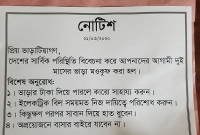 নোটিশ
০১/০৩/২০২০
প্রিয় ভাড়াটিয়াগণ,
দেশের সার্বিক পরিস্থিতি বিবেচনা করে আপনাদের আগামী দুই
মাসের ভাড়া মওকুফ করা হল।
বিশেষ অনুরোধঃ
১। ভাড়ার টাকা দিয়ে পারলে কারো সাহায্য করুন।
২। ইলেকট্রিক বিল সময়মত নিজ দায়িত্বে পরিশোধ করুন।
৩। কিছুক্ষণ পরপর সাবান দিয়ে হাত ধুবেন।
৪। অপ্রয়োজনে বাসার বাইরে যাবেন না।